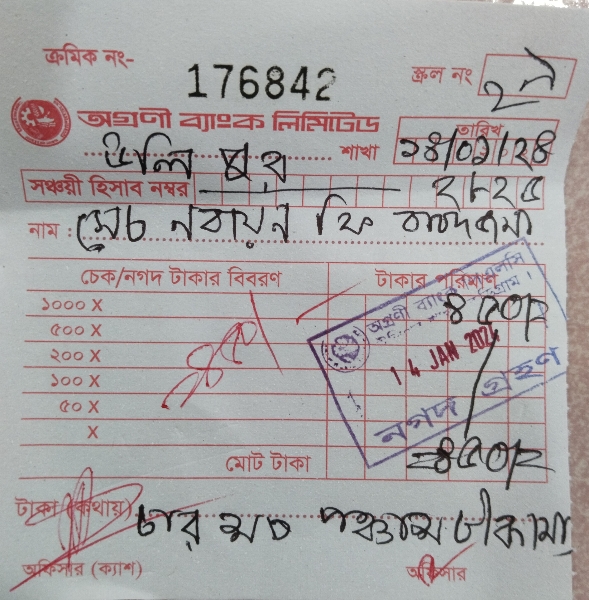 ক্রমিক নং-
176842
স্ক্রল নং
অগ্রণী ব্যাংক লিমিটেড
তারিখ
শাখা ১৪/০১/২৪
সঞ্চয়ী হিসাব নম্বর
নাম : সেচ নবায়ন ফি বাবদ জমা
চেক/নগদ টাকার বিবরণ টাকার পরিমাণ
১০০০ X ৪৫০/=
৫০০ X
২০০ X
১০০ X
৫০ X
X
অগ্রণী ব্যাংক পিএলসি
14 JAN 2024
নগদ গ্রহণ
মোট টাকা =৪৫০/=
টাকা (কথায়) চার শত পঞ্চাশ টাকা মাত্র
অফিসার (ক্যাশ) অফিসার